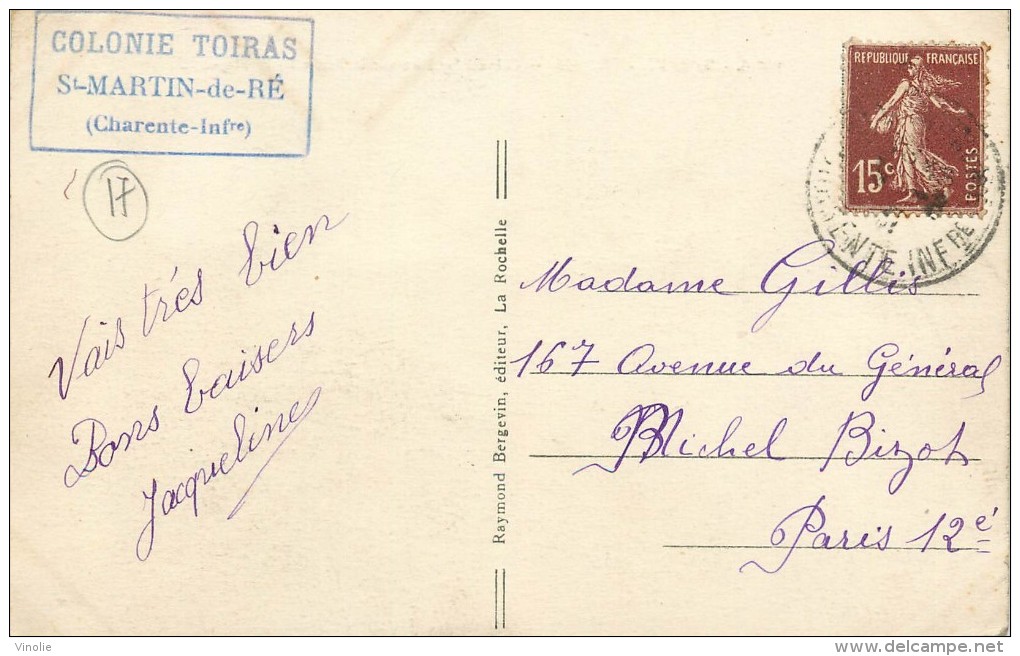 COLONIE TOIRAS
St-MARTIN-de-RÉ
(Charente-Infre)
17
Vais très bien
Bons baisers
Jacqueline
Raymond Bergevin, éditeur, La Rochelle
RÉPUBLIQUE FRANÇAISE
15c
POSTES
ENTE INFRE
Madame Gillis
167 Avenue du Général
Michel Bizot
Paris 12é
Vinolie
www.delcampe.net